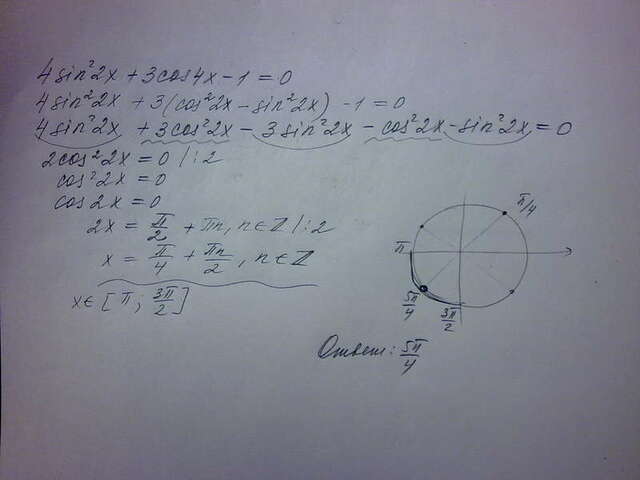 4sin²2x + 3cos4x - 1 = 0
4sin²2x + 3(cos²2x - sin²2x) - 1 = 0
4sin²2x + 3cos²2x - 3sin²2x - cos²2x - sin²2x = 0
2cos²2x = 0 /:2
cos²2x = 0
cos2x = 0
2x = π/2 + πn, n∈ℤ /:2
x = π/4 + πn/2, n∈ℤ
x∈[π; 3π/2]
π/4
π
5π/4
3π/2
Ответ: 5π/4